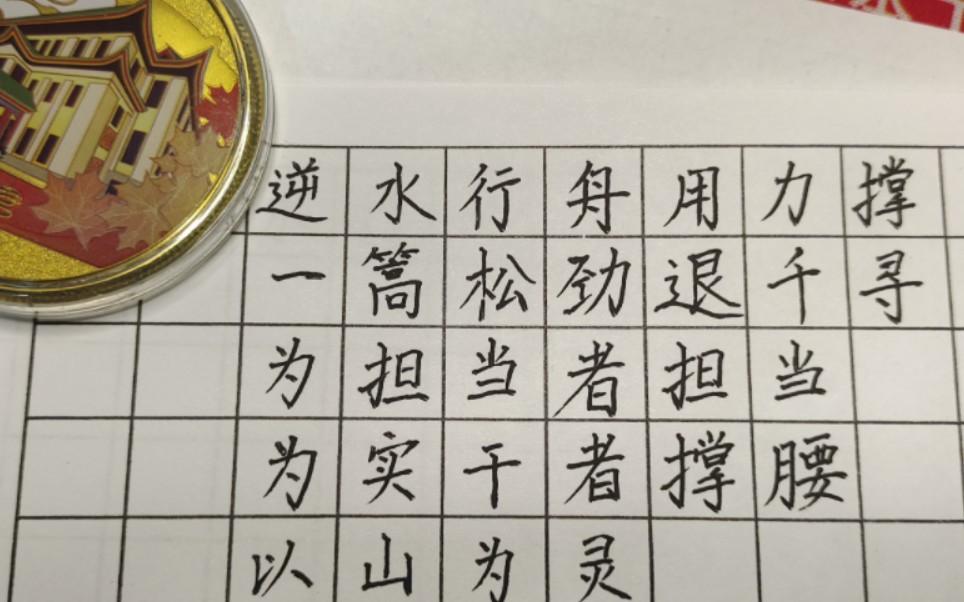 逆水行舟用力撑
一篙松劲退千寻
为担当者担当
为实干者撑腰
以山为灵